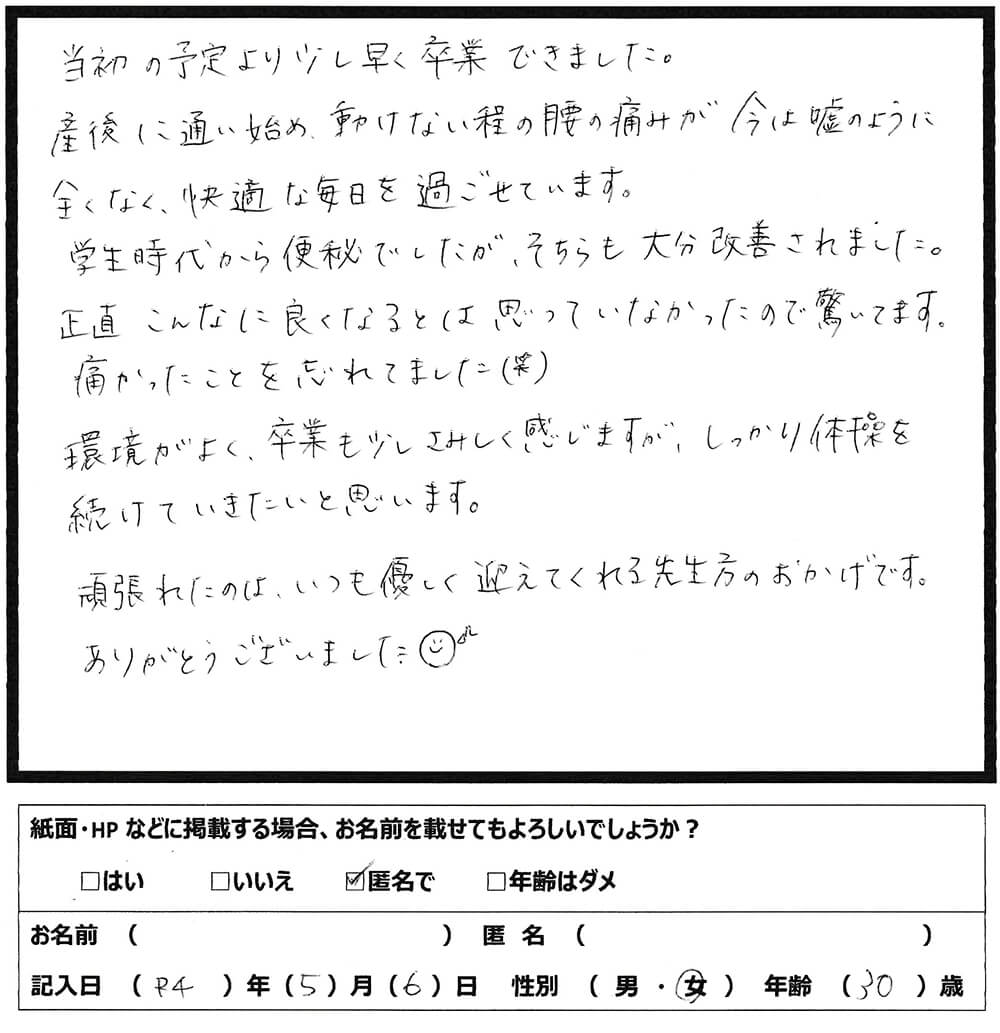 当初の予定より少し早く卒業できました。
産後に通い始め、動けない程の腰の痛みが今は嘘のように
全くなく、快適な毎日を過ごせています。
学生時代から便秘でしたが、そちらも大分改善されました。
正直こんなに良くなるとは思っていなかったので驚いてます。
痛かったことを忘れてました(笑)
環境がよく、卒業も少しさみしく感じますが、しっかり体操を
続けていきたいと思います。
頑張れたのは、いつも優しく迎えてくれる先生方のおかげです。
ありがとうございました
紙面・HPなどに掲載する場合、お名前を載せてもよろしいでしょうか？
□はい □いいえ ☑匿名で □年齢はダメ
お名前 （ ） 匿名 （ ）
記入日 （ R4 ）年（5）月（6）日 性別 （ 男 ・ 女 ） 年齢 （30 ）歳